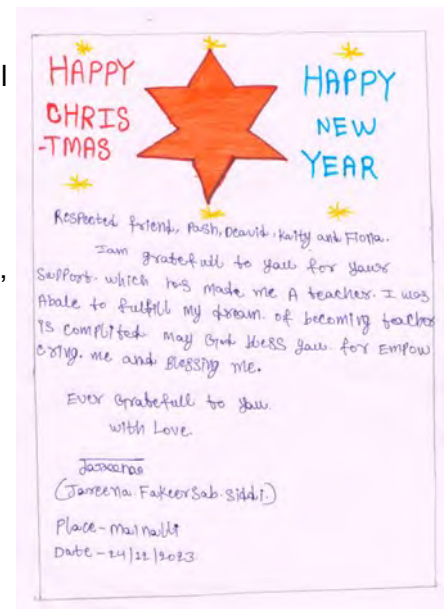 l
,
HAPPY
CHRIS
-TMAS
HAPPY
NEW
YEAR
Respected friend, Pash, Deavid, Kaity and Fiona.
Iam gratefull to you for yours
Support. which has made me A teacher. I was
Abale to fulfill my dream. of becoming teacher
is complited may God bless you. for Empow
ering. me and Blessing me.
Ever Gratefull to you
with Love.
Jareena
(Jareena. FakeerSab. Siddi.)
Place - Mainalli
Date - 24/12/2023